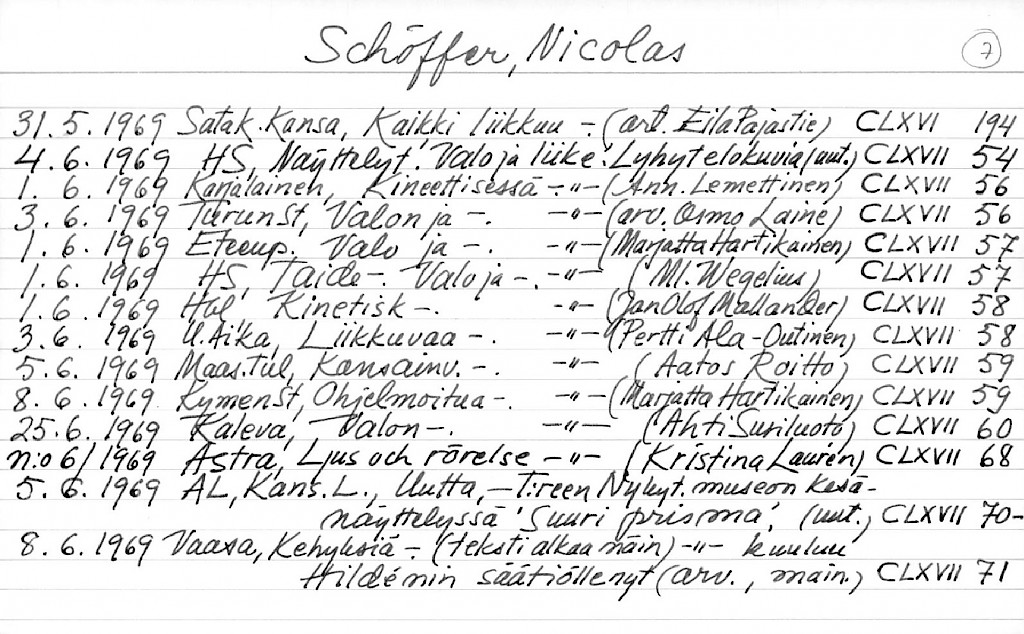 Schöffer, Nicolas 7
31.5.1969 Satak.Kansa, Kaikki liikkuu -. (art. Eila Pajastie) CLXVI 194
4.6.1969 HS, Näyttelyt. Valo ja liike. Lyhytelokuvia (uut.) CLXVII 54
1.6.1969 Karjalainen, Kineettisessä -. -"- (Ann. Lemettinen) CLXVII 56
3.6.1969 TurunSt, Valon ja -. -"- (arv. Osmo Laine) CLXVII 56
1.6.1969 Eteenp. Valo ja -. -"- (Marjatta Hartikainen) CLXVII 57
1.6.1969 HS, Taide -. Valo ja -. -"- (Ml. Wegelius) CLXVII 57
1.6.1969 Hbl, Kinetisk -. -"- (JanOlof Mallander) CLXVII 58
3.6.1969 U.Aika, Liikkuvaa -. -"- (Pertti Ala-Outinen) CLXVII 58
5.6.1969 Maas.tul, Kansainv. -. -"- (Aatos Roitto) CLXVII 59
8.6.1969 KymenSt, Ohjelmoitua -. -"- (Marjatta Hartikainen) CLXVII 59
25.6.1969 Kaleva, Valon -. -"- (Ahti Susiluoto) CLXVII 60
n:o 6/1969 Astra, Ljus och rörelse -"- (Kristina Laurén) CLXVII 68
5.6.1969 AL, Kans.L., Uutta, - T:reen Nykyt.museon kesä-
näyttelyssä 'Suuri prisma'. (uut.) CLXVII 70-
8.6.1969 Vaasa, Kehyksiä -. (teksti alkaa näin) -"- kuuluu
Hildénin säätiölle nyt (arv., main.) CLXVII 71